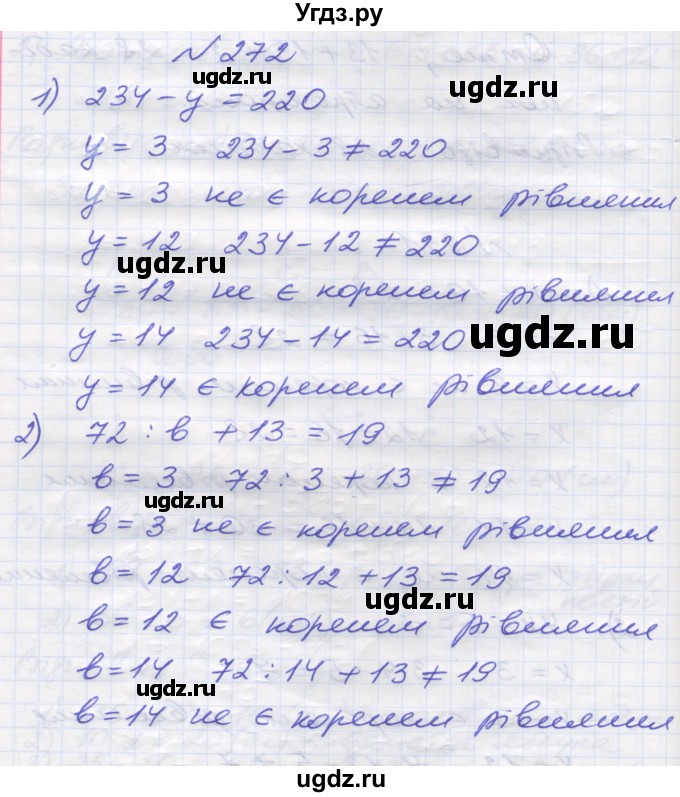 Угдз.ру
№ 272
ugdz.ru
1) 234 - y = 220
y = 3 234 - 3 ≠ 220
y = 3 не є коренем рівняння
y = 12 234 - 12 ≠ 220
ugdz.ru
y = 12 не є коренем рівняння
y = 14 234 - 14 = 220
ugdz.ru
y = 14 є коренем рівняння
2) 72 : в + 13 = 19
в = 3 72 : 3 + 13 ≠ 19
ugdz.ru
в = 3 не є коренем рівняння
в = 12 72 : 12 + 13 = 19
ugdz.ru
в = 12 є коренем рівняння
в = 14 72 : 14 + 13 ≠ 19
ugdz.ru
в = 14 не є коренем рівняння
ugdz.ru